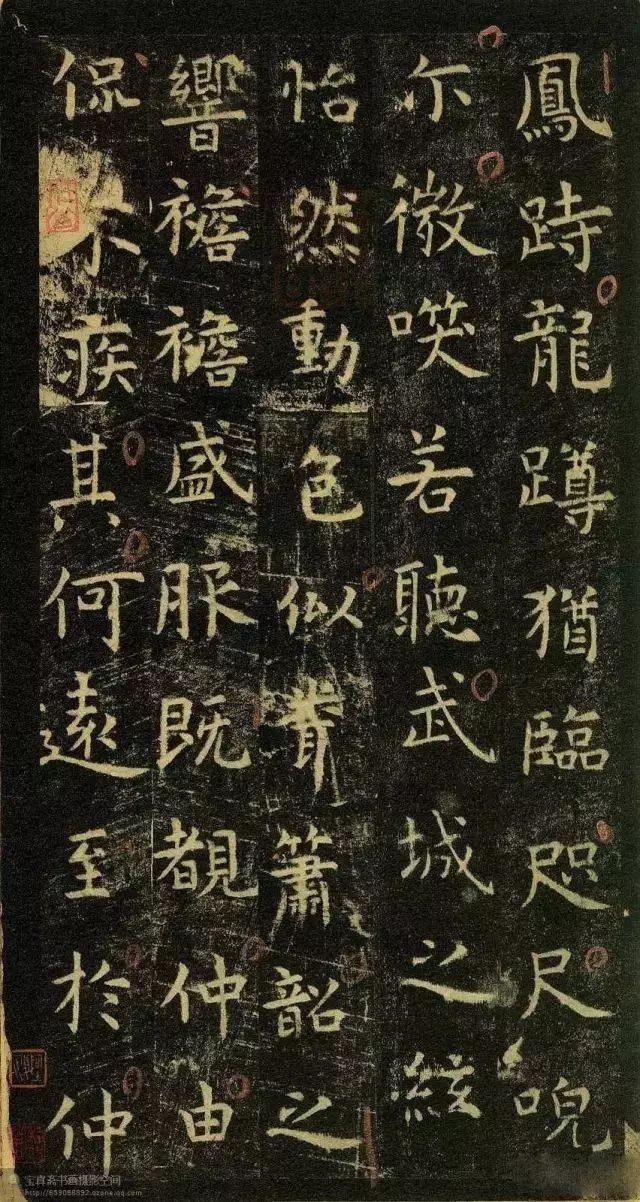 鳳跱龍蹲猶臨咫尺唲
尒微咲若聽武城之絃
怡然動色似簫韶之
響襜襜盛服既覩仲由
侃不疾其何遠至於仲
宝真斋书画摄影空间
http://659088892.qzone.qq.com